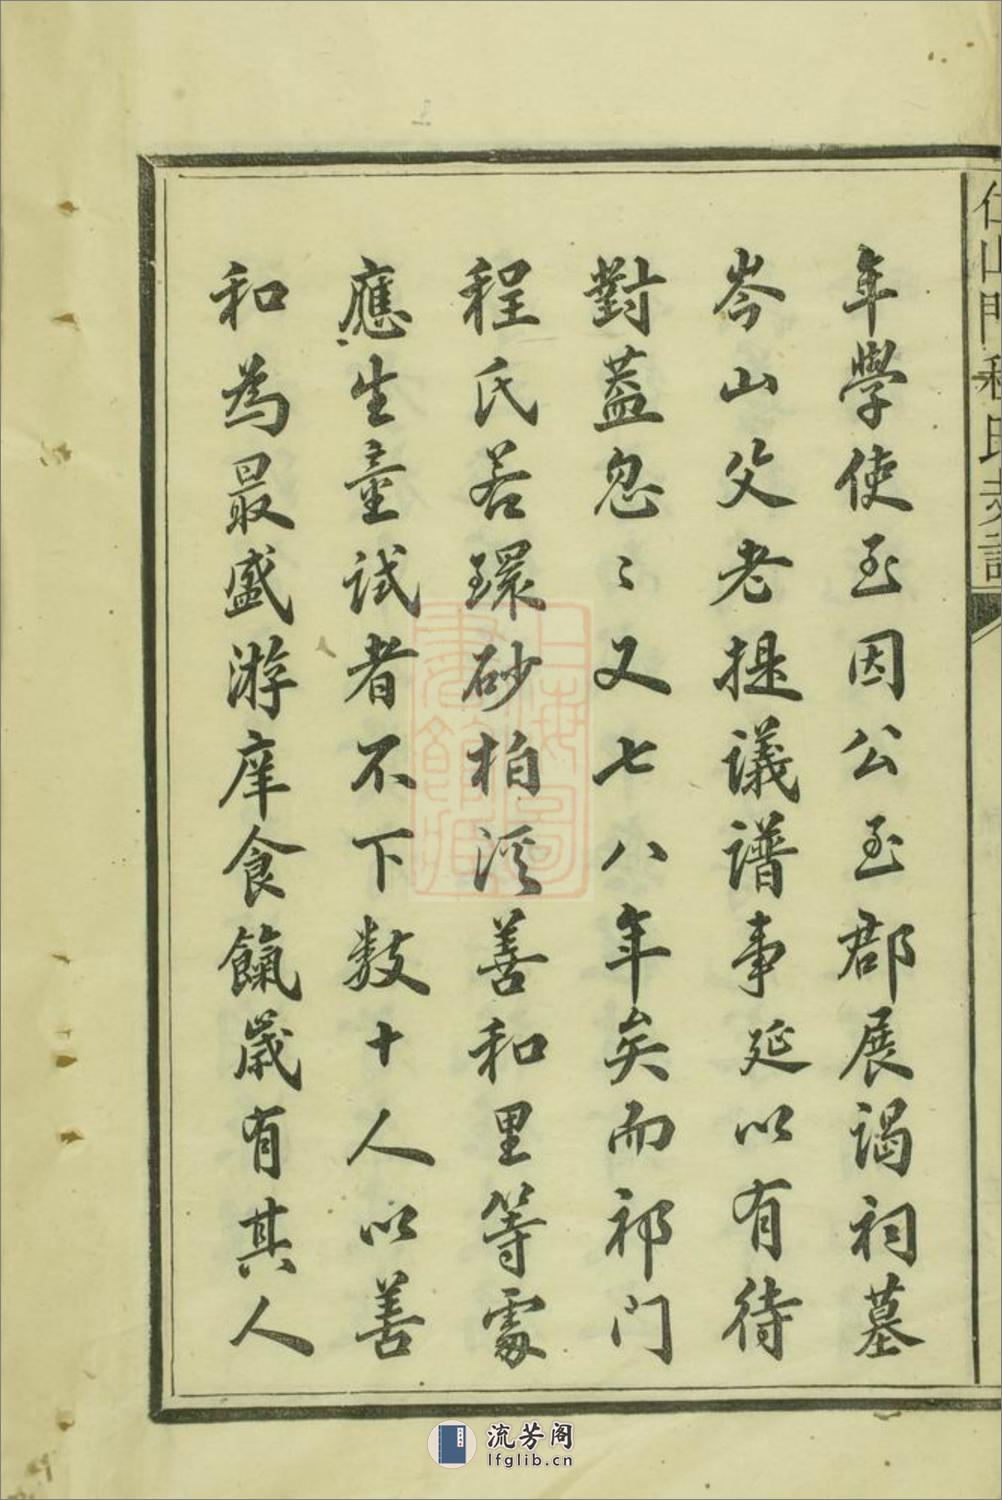 年學使至因公至郡展谒祠墓
岑山父老提議譜事延以有待
對蓋忽〻又七八年矣而祁门
程氏若環砂柏溪善和里等處
應生童試者不下数十人以善
和為最盛游庠食餼歲有其人
山門程氏
上海圖書館藏
流芳阁
lfglib.cn